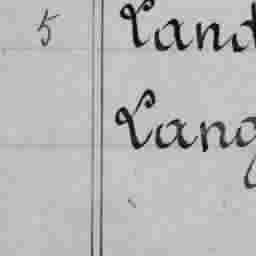 5 Land
Lang